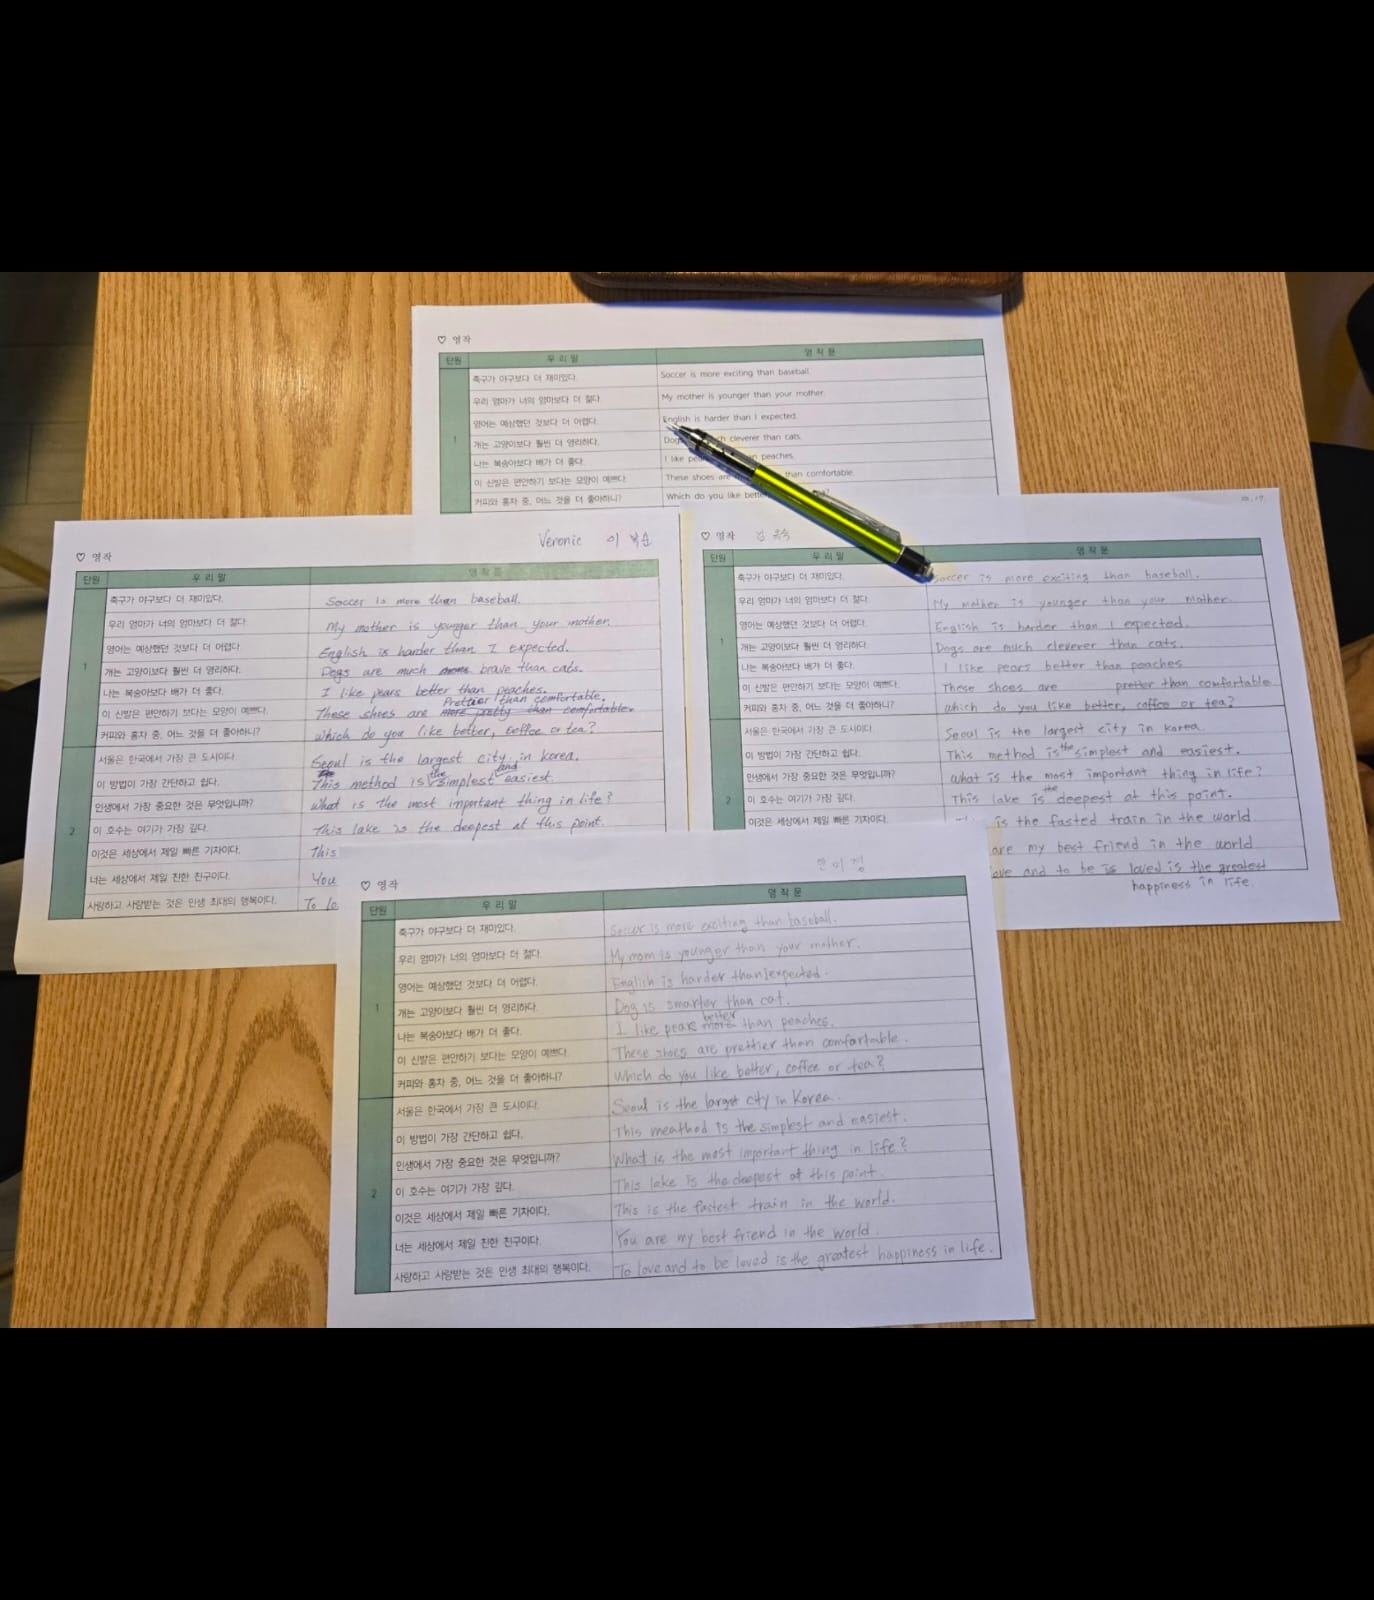 ♡ 영작
단원 우리말 영작문
1
축구가 야구보다 더 재미있다. Soccer is more exciting than baseball.
우리 엄마가 너의 엄마보다 더 젊다. My mother is younger than your mother.
영어는 예상했던 것보다 더 어렵다. English is harder than I expected.
개는 고양이보다 훨씬 더 영리하다. cleverer than cats.
나는 복숭아보다 배가 더 좋다. I like peaches.
이 신발은 편안하기 보다는 모양이 예쁘다. These shoes are than comfortable.
커피와 홍차 중, 어느 것을 더 좋아하니? Which do you like
Veronic 이복순
♡ 영작
단원 우리말 영작문
1
축구가 야구보다 더 재미있다. Soccer is more than baseball.
우리 엄마가 너의 엄마보다 더 젊다. My mother is younger than your mother.
영어는 예상했던 것보다 더 어렵다. English is harder than I expected.
개는 고양이보다 훨씬 더 영리하다. Dogs are much brave than cats.
나는 복숭아보다 배가 더 좋다. I like pears better than peaches.
Prettier than comfortable.
이 신발은 편안하기 보다는 모양이 예쁘다. These shoes are more pretty than comfortable.
커피와 홍차 중, 어느 것을 더 좋아하니? Which do you like better, coffee or tea?
2
서울은 한국에서 가장 큰 도시이다. Seoul is the largest city in korea.
이 방법이 가장 간단하고 쉽다. This method is the simplest and easiest.
인생에서 가장 중요한 것은 무엇입니까? What is the most important thing in life?
이 호수는 여기가 가장 깊다. This lake is the deepest at this point.
이것은 세상에서 제일 빠른 기차이다. This
너는 세상에서 제일 친한 친구이다. You
사랑하고 사랑받는 것은 인생 최대의 행복이다. To lo
10.17.
♡ 영작
단원 우리말 영작문
1
축구가 야구보다 더 재미있다. Soccer is more exciting than baseball.
우리 엄마가 너의 엄마보다 더 젊다. My mother is younger than your mother.
영어는 예상했던 것보다 더 어렵다. English is harder than I expected.
개는 고양이보다 훨씬 더 영리하다. Dogs are much cleverer than cats.
나는 복숭아보다 배가 더 좋다. I like pears better than peaches
이 신발은 편안하기 보다는 모양이 예쁘다. These shoes are prettor than comfortable
커피와 홍차 중, 어느 것을 더 좋아하니? which do you like better, coffee or tea?
2
서울은 한국에서 가장 큰 도시이다. Seoul is the largest city in korea
이 방법이 가장 간단하고 쉽다. This method is the simplest and easiest.
인생에서 가장 중요한 것은 무엇입니까? what is the most important thing in life?
이 호수는 여기가 가장 깊다. This lake is the deepest at this point.
이것은 세상에서 제일 빠른 기차이다. is the fasted train in the world
are my best friend in the world
ove and to be is loved is the greatest
happiness in life.
한이정
♡ 영작
단원 우리말 영작문
1
축구가 야구보다 더 재미있다. Soccer is more exciting than baseball.
우리 엄마가 너의 엄마보다 더 젊다. My mom is younger than your mother.
영어는 예상했던 것보다 더 어렵다. English is harder than I expected.
개는 고양이보다 훨씬 더 영리하다. Dog is smarter than cat.
better
나는 복숭아보다 배가 더 좋다. I like pears more than peaches.
이 신발은 편안하기 보다는 모양이 예쁘다. These shoes are prettier than comfortable.
커피와 홍차 중, 어느 것을 더 좋아하니? Which do you like better, coffee or tea?
2
서울은 한국에서 가장 큰 도시이다. Seoul is the largest city in Korea.
이 방법이 가장 간단하고 쉽다. This meathod is the simplest and easiest.
인생에서 가장 중요한 것은 무엇입니까? What is the most important thing in life?
이 호수는 여기가 가장 깊다. This lake is the deepest at this point.
이것은 세상에서 제일 빠른 기차이다. This is the fastest train in the world.
너는 세상에서 제일 친한 친구이다. You are my best friend in the world.
사랑하고 사랑받는 것은 인생 최대의 행복이다. To love and to be loved is the greatest happiness in life.